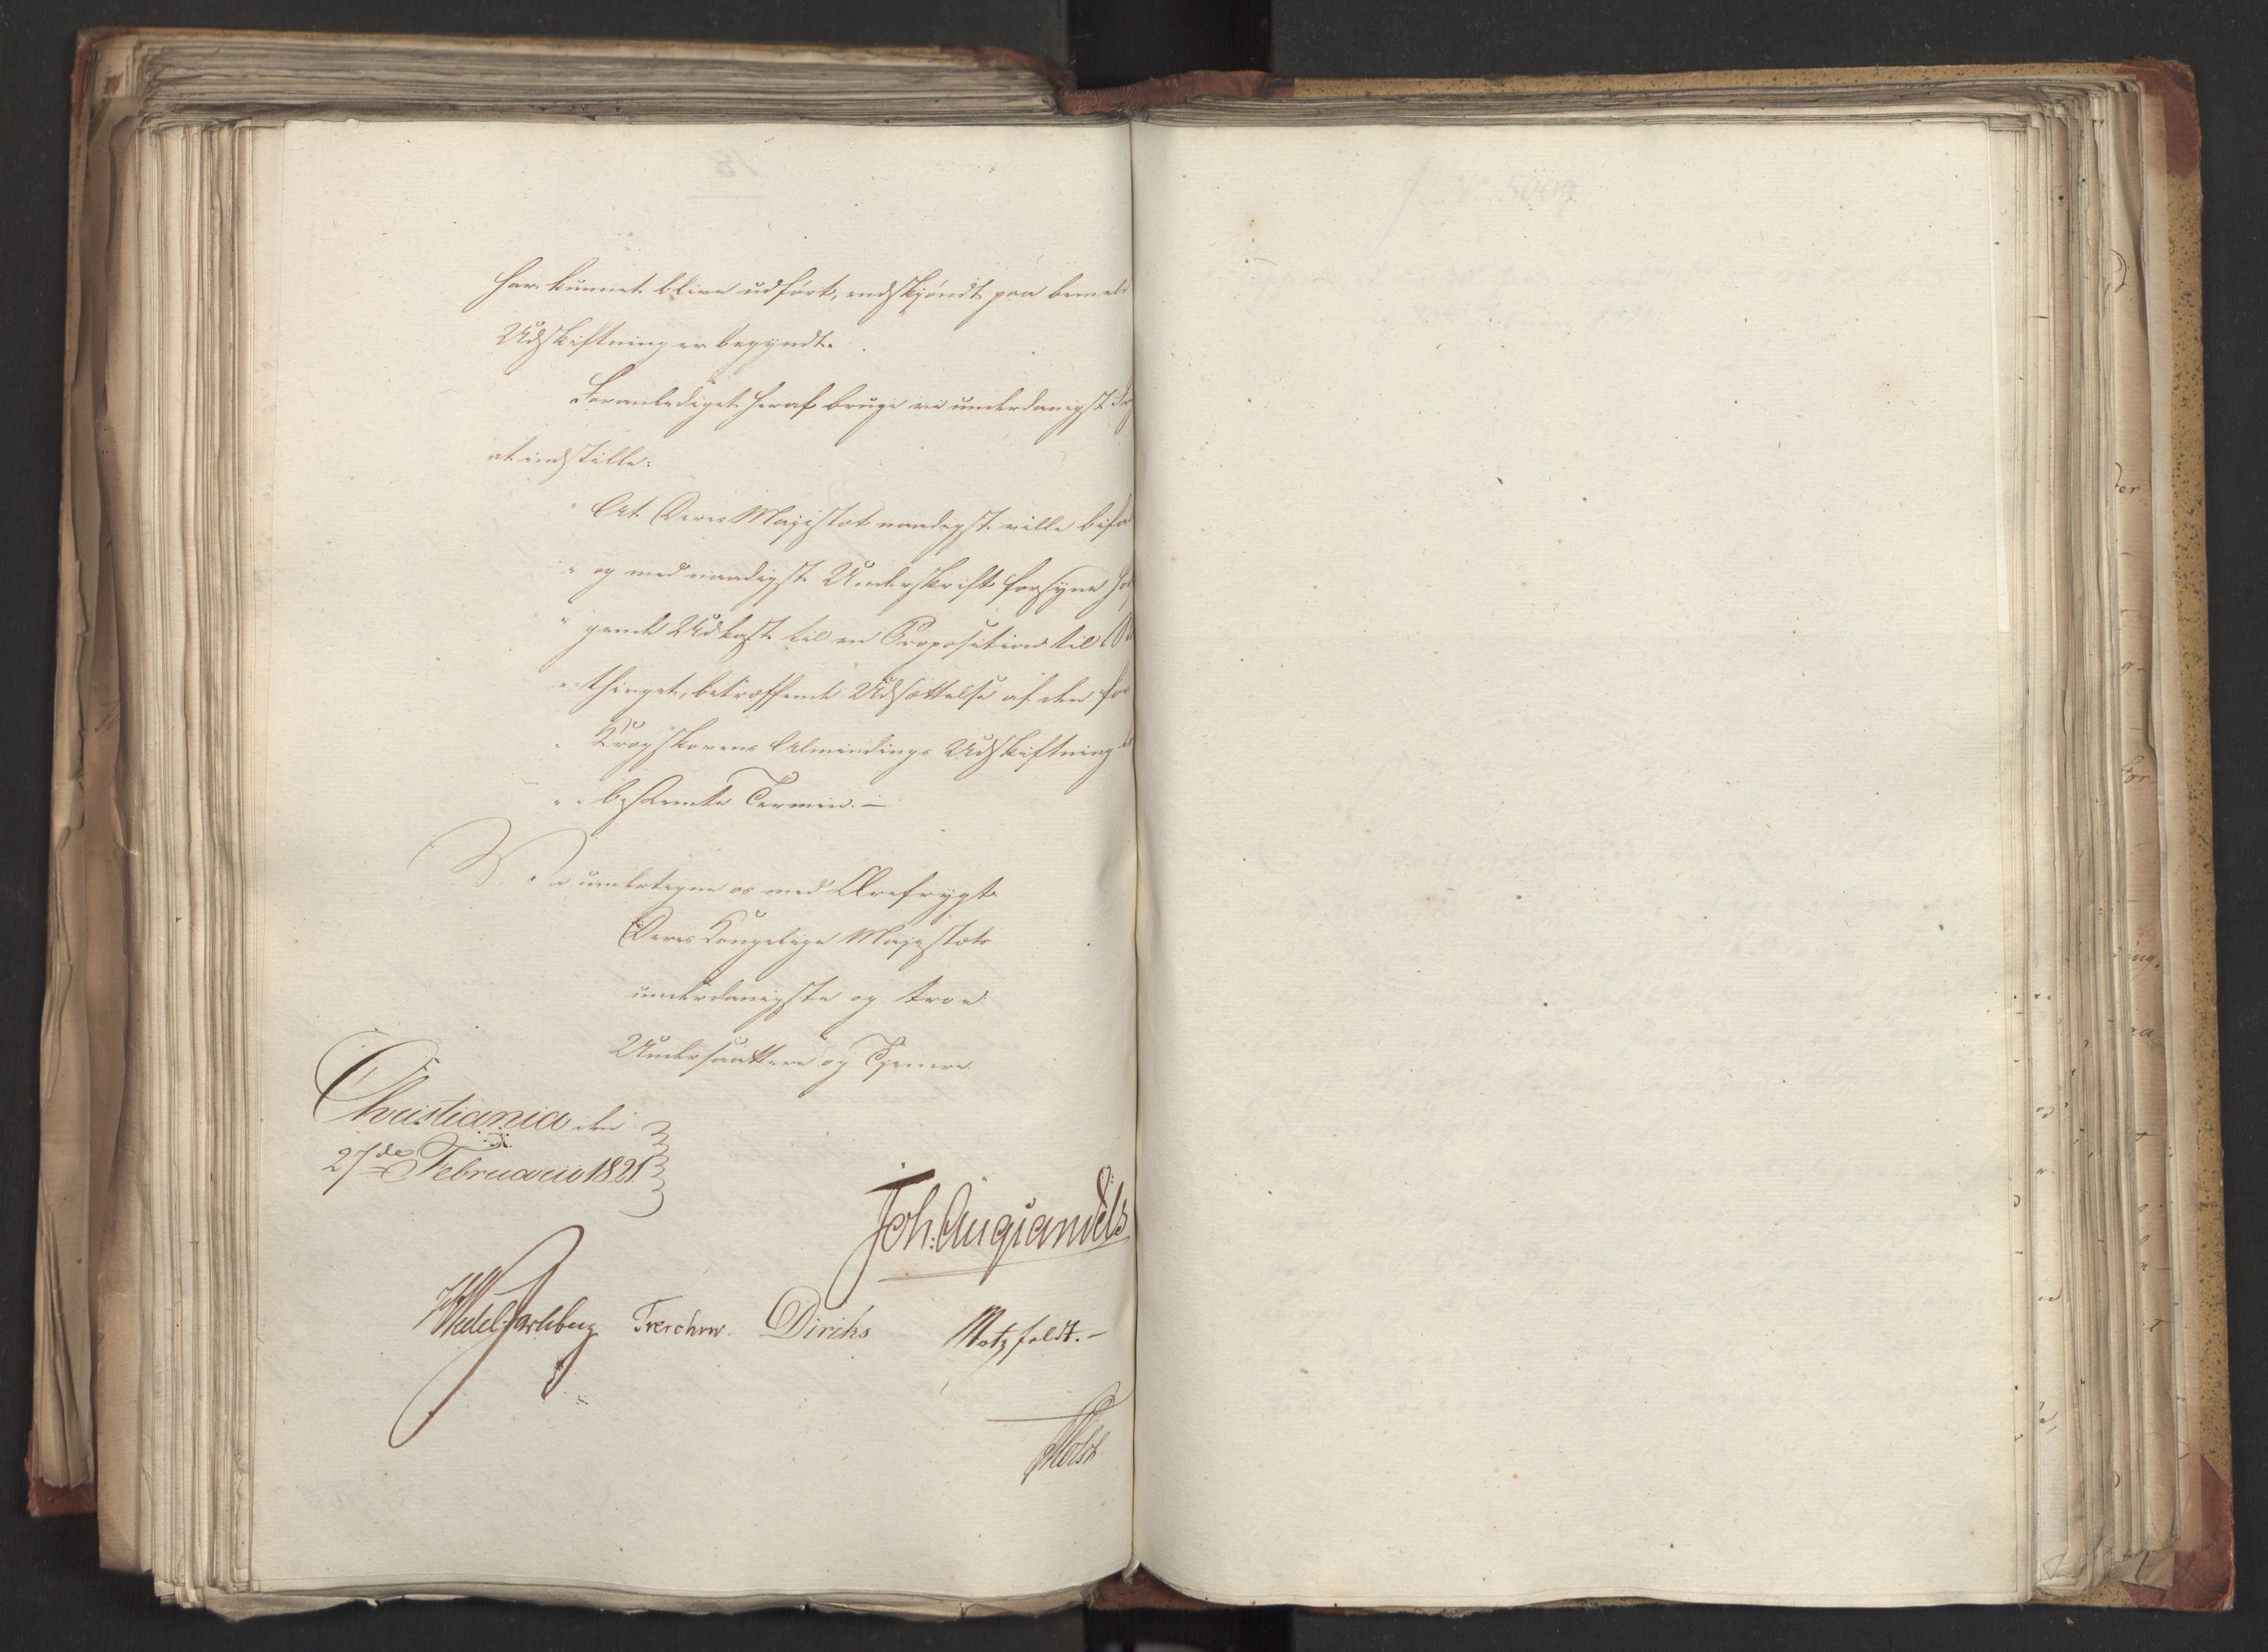 har kunnet blive udført, endskjøndt paa bemeld
Udskiftning er begyndt.
Foranlediget heraf bruge vi underdanigst
at indstille:
" At Deres Majestæt naadigst ville bifa
" og med naadigst Underskrift forsyne føl
" gende Udkast til en Proposition til
" thinget, betræffende Udsættelse af den for
" Krogskovens Almindings Udskiftning
" bestemte Termin. —
Vi undertegne os med Ærefrygt
Deres Kongelige Majestæts
underdanigste og troe
Undersaattere og Tjenere
Christiania den
27de Februario 1821.
Joh: Aug Sandels
Wedel Jarlsberg Treschow. Diriks Motzfeldt. —
Holst